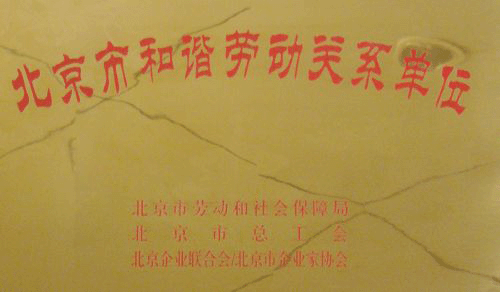 北京市和谐劳动关系单位
北京市劳动和社会保障局
北京市总工会
北京企业联合会/北京市企业家协会